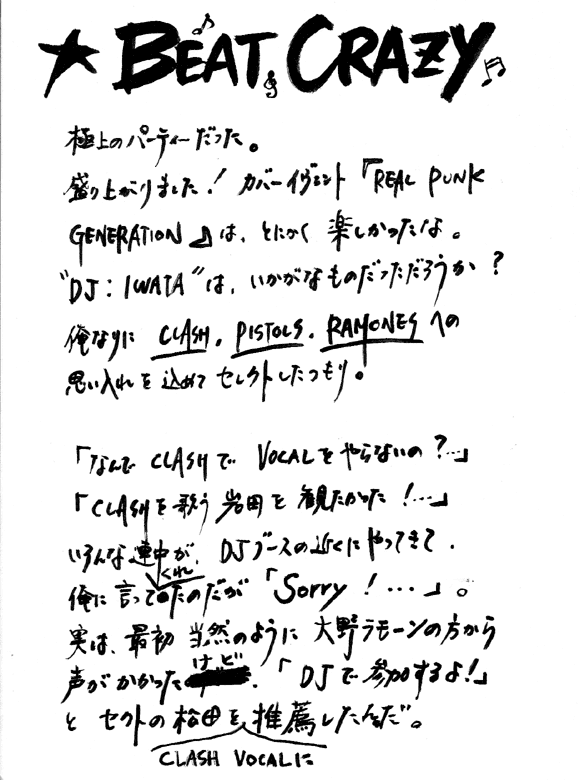 ★ BEAT CRAZY
極上のパーティーだった。
盛り上がりました！ カバーイヴェント「REAL PUNK
GENERATION」は、とにかく楽しかったな。
"DJ：IWATA"は、いかがなものだっただろうか？
俺なりに CLASH、PISTOLS、RAMONES への
思い入れを込めてセレクトしたつもり。
「なんで CLASHで VOCALをやらないの？…」
「CLASHを歌う岩田を観たかった！…」
いろんな連中が、DJブースの近くにやってきて、
くれ
俺に言ってたのだが「Sorry！…」。
実は、最初 当然のように 大野ラモーンの方から
けど
声がかかった、「DJで参加するよ!」
と セクトの松田を推薦したんだ。
CLASH VOCALに